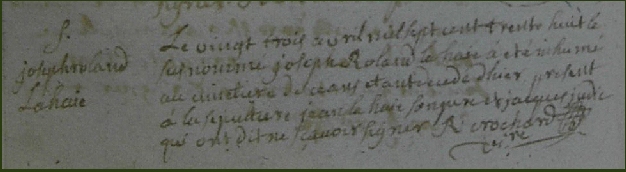 S.
joseph roland
Lahaie
Le vingt trois avril mil sept cent trente huit le
nommé joseph Roland la haie a été inhumé
au cimetiere de ceans etant decedé d'hier present
a la sepulture jean la haie son pere et jacques
qui ont dit ne scavoir signer R crochard